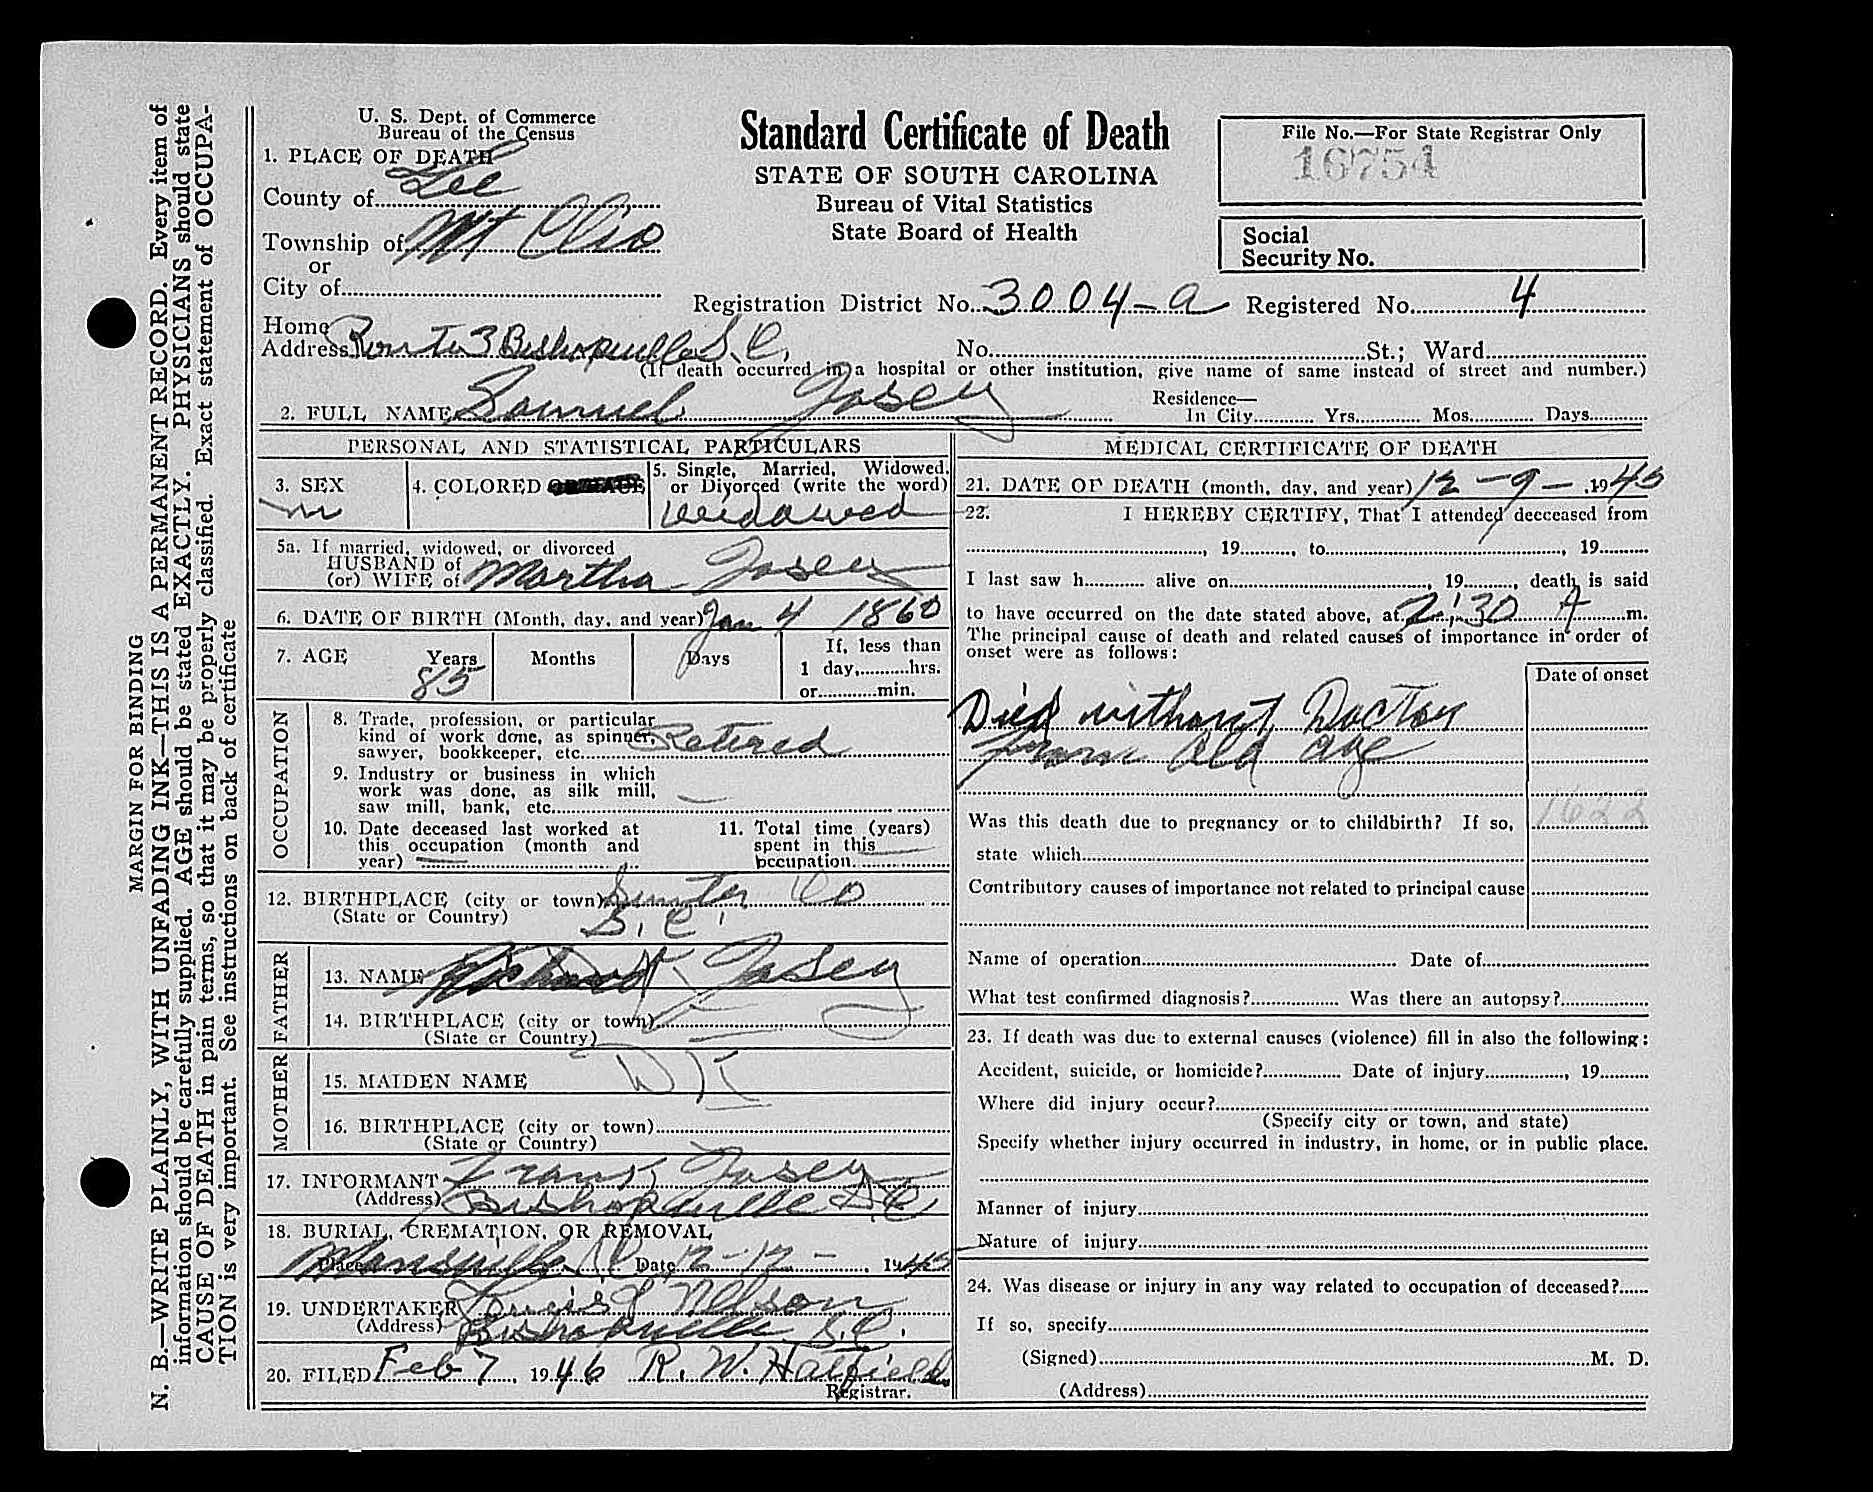 U. S. Dept. of Commerce
Bureau of the Census
Standard Certificate of Death
STATE OF SOUTH CAROLINA
Bureau of Vital Statistics
State Board of Health
File No.—For State Registrar Only
16754
Social
Security No.
1. PLACE OF DEATH
County of Lee
Township of Mt Clio
or
City of
Registration District No. 3004-a Registered No. 4
Home
Address Route 3 Bishopville S. C. No. St.; Ward
(If death occurred in a hospital or other institution, give name of same instead of street and number.)
2. FULL NAME Samuel Josey
Residence—
In City Yrs. Mos. Days
PERSONAL AND STATISTICAL PARTICULARS
3. SEX
m
4. COLORED
5. Single, Married, Widowed,
or Divorced (write the word)
widowed
5a. If married, widowed, or divorced
HUSBAND of
(or) WIFE of Martha Josey
6. DATE OF BIRTH (Month, day, and year) Jan 4 1860
7. AGE Years Months Days
85
If less than
1 day, hrs.
or min.
OCCUPATION
8. Trade, profession, or particular
kind of work done, as spinner,
sawyer, bookkeeper, etc. Retired
9. Industry or business in which
work was done, as silk mill,
saw mill, bank, etc.
10. Date deceased last worked at
this occupation (month and
year)
11. Total time (years)
spent in this
occupation
12. BIRTHPLACE (city or town) Sumter Co
(State or Country) S. C.
FATHER
13. NAME Richard Josey
14. BIRTHPLACE (city or town)
(State or Country)
MOTHER
15. MAIDEN NAME D K
16. BIRTHPLACE (city or town)
(State or Country)
17. INFORMANT Frank Josey
(Address) Bishopville S.C
18. BURIAL, CREMATION, OR REMOVAL
Place Date 12-12- 1945
19. UNDERTAKER Nelson
(Address) Bishopville S.C.
20. FILED Feb 7, 1946 R. W. Hatfield
Registrar.
MEDICAL CERTIFICATE OF DEATH
21. DATE OF DEATH (month, day, and year) 12-9-, 1945
22. I HEREBY CERTIFY, That I attended deceased from
, 19 , to , 19
I last saw h alive on , 19 , death is said
to have occurred on the date stated above, at 2:30 A m.
The principal cause of death and related causes of importance in order of
onset were as follows:
Date of onset
Died without Doctor
from old age
1622
Was this death due to pregnancy or to childbirth? If so,
state which
Contributory causes of importance not related to principal cause
Name of operation Date of
What test confirmed diagnosis? Was there an autopsy?
23. If death was due to external causes (violence) fill in also the following:
Accident, suicide, or homicide? Date of injury , 19
Where did injury occur?
(Specify city or town, and state)
Specify whether injury occurred in industry, in home, or in public place.
Manner of injury
Nature of injury
24. Was disease or injury in any way related to occupation of deceased?
If so, specify
(Signed) M. D.
(Address)
MARGIN FOR BINDING
N. B.—WRITE PLAINLY, WITH UNFADING INK—THIS IS A PERMANENT RECORD. Every item of
information should be carefully supplied. AGE should be stated EXACTLY. PHYSICIANS should state
CAUSE OF DEATH in pain terms, so that it may be properly classified. Exact statement of OCCUPA-
TION is very important. See instructions on back of certificate